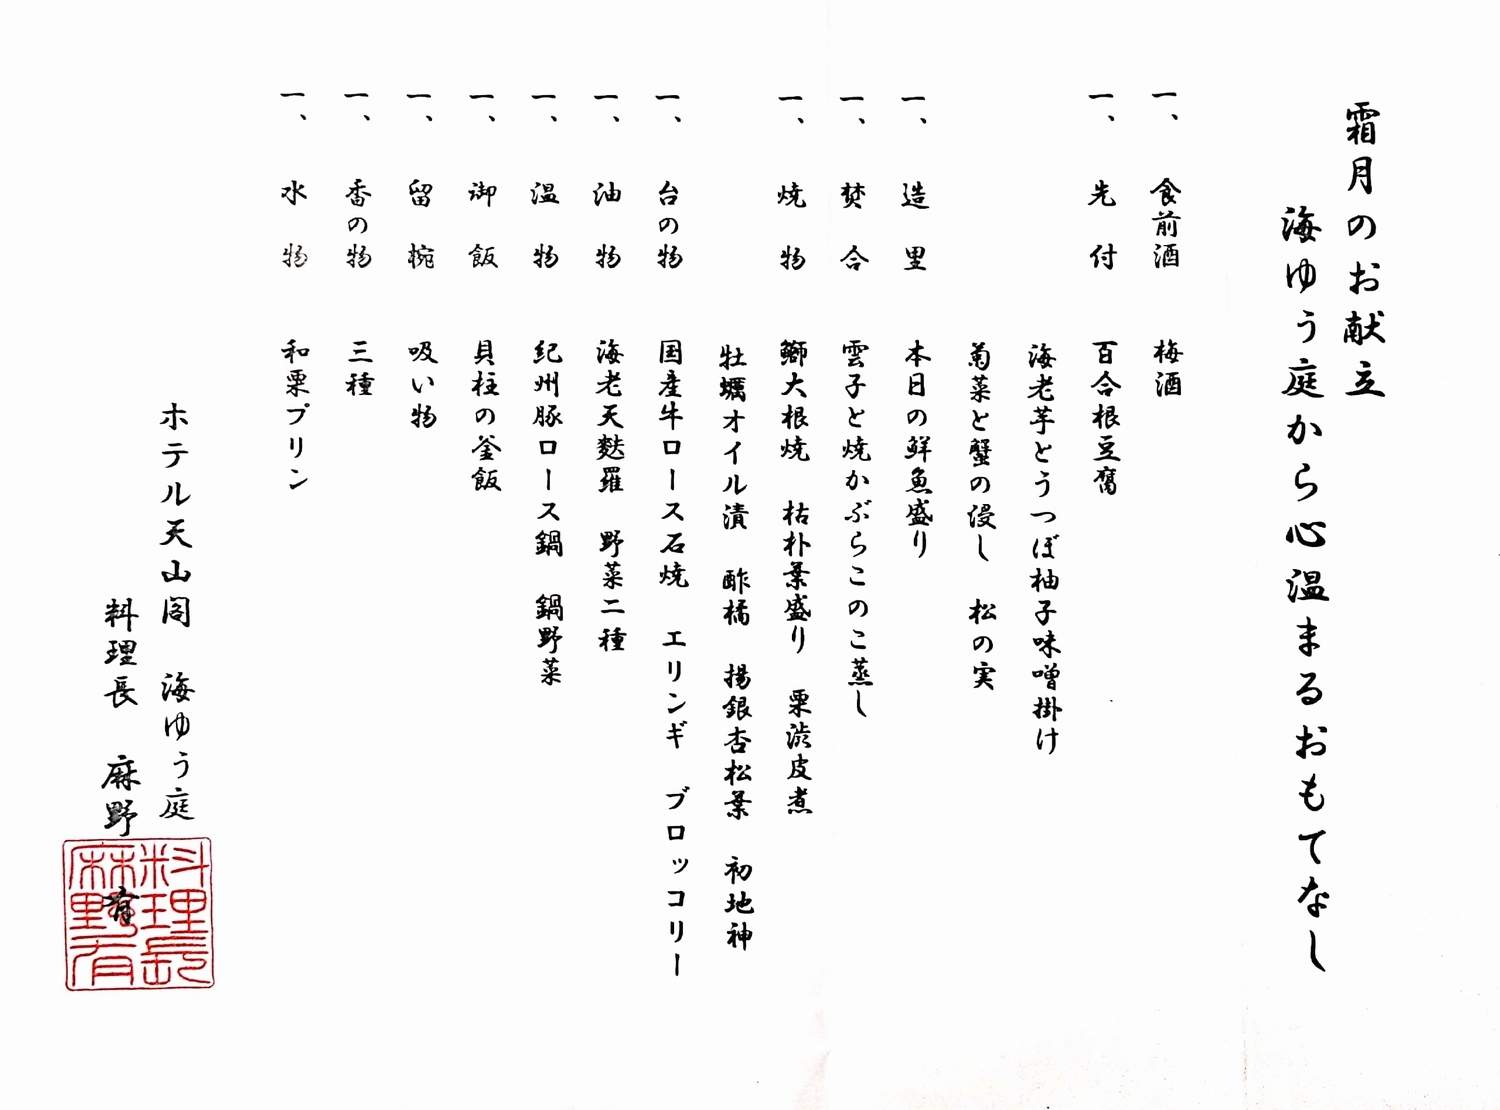 霜月のお献立
海ゆう庭から心温まるおもてなし
一、食前酒　梅酒
一、先付　百合根豆腐
海老芋とうつぼ柚子味噌掛け
菊菜と蟹の浸し　松の実
一、造里　本日の鮮魚盛り
一、焚合　雲子と焼かぶらこのこ蒸し
一、焼物　鰤大根焼　枯朴葉盛り　栗渋皮煮
牡蠣オイル漬　酢橘　揚銀杏松葉　初地神
一、台の物　国産牛ロース石焼　エリンギ　ブロッコリー
一、油物　海老天麩羅　野菜二種
一、温物　紀州豚ロース鍋　鍋野菜
一、御飯　貝柱の釜飯
一、留椀　吸い物
一、香の物　三種
一、水物　和栗プリン
ホテル天山閣　海ゆう庭
料理長　麻野　有
料理長
麻野有